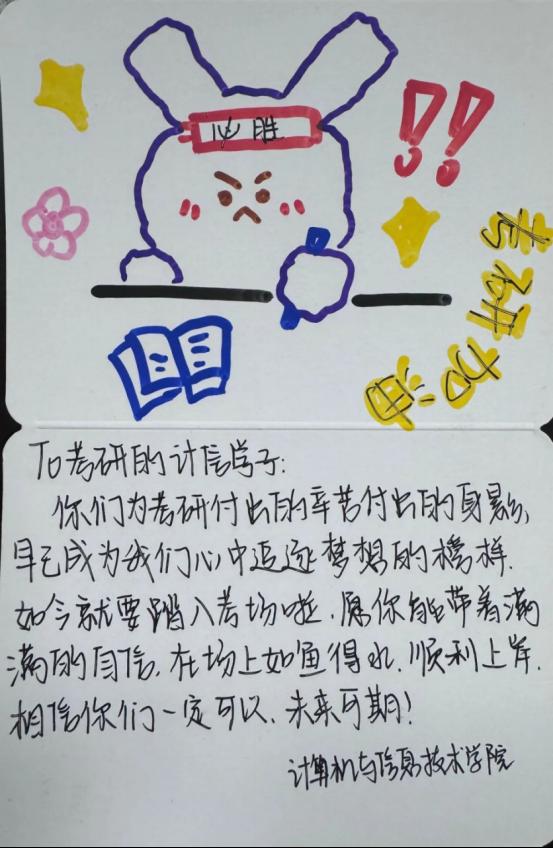 必胜
!!
考研加油
To 考研的计信学子:
你们为考研付出的辛苦付出的身影,
早已成为我们心中追逐梦想的榜样.
如今就要踏入考场啦,愿你能带着满
满的自信,在场上如鱼得水,顺利上岸.
相信你们一定可以,未来可期!
计算机与信息技术学院